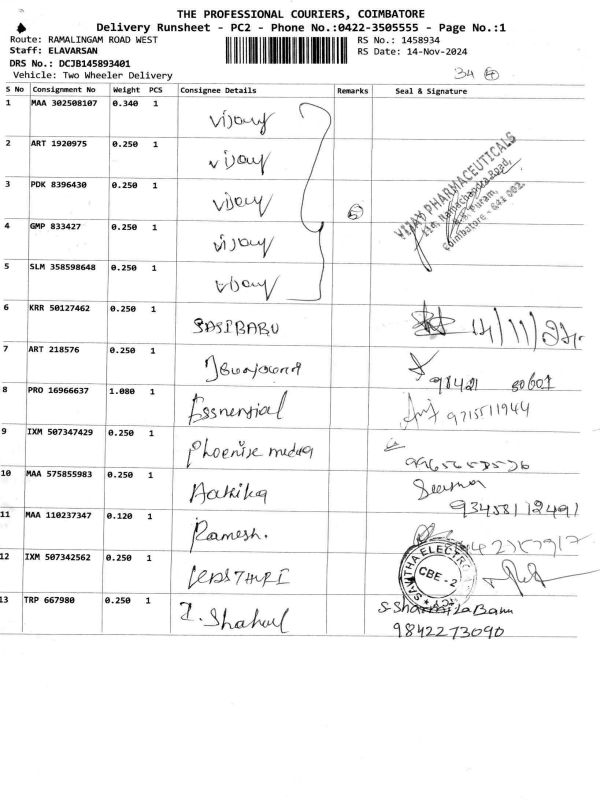 THE PROFESSIONAL COURIERS, COIMBATORE
Delivery Runsheet - PC2 - Phone No.:0422-3505555 - Page No.:1
Route: RAMALINGAM ROAD WEST
RS No.: 1458934
Staff: ELAVARSAN
RS Date: 14-Nov-2024
DRS No.: DCJB145893401
Vehicle: Two Wheeler Delivery
34
S No Consignment No Weight PCS Consignee Details Remarks Seal & Signature
1 MAA 302508107 0.340 1 vijay
2 ART 1920975 0.250 1 vijay
3 PDK 8396430 0.250 1 vijay 5
VIJAY PHARMACEUTICALS
Ramachandra Road,
R.S. Puram,
Coimbatore - 641 002.
4 GMP 833427 0.250 1 vijay
5 SLM 358598648 0.250 1 vijay
6 KRR 50127462 0.250 1 SASIBABU 14/11/24
7 ART 218576 0.250 1 98421 50601
8 PRO 16966637 1.080 1 9715511944
9 IXM 507347429 0.250 1 Phoenise
10 MAA 575855983 0.250 1
11 MAA 110237347 0.120 1 Ramesh.
12 IXM 507342562 0.250 1
SAVITHA ELECTRO
CBE - 2
13 TRP 667980 0.250 1 Shahul S. Sharmila Banu
9842273090